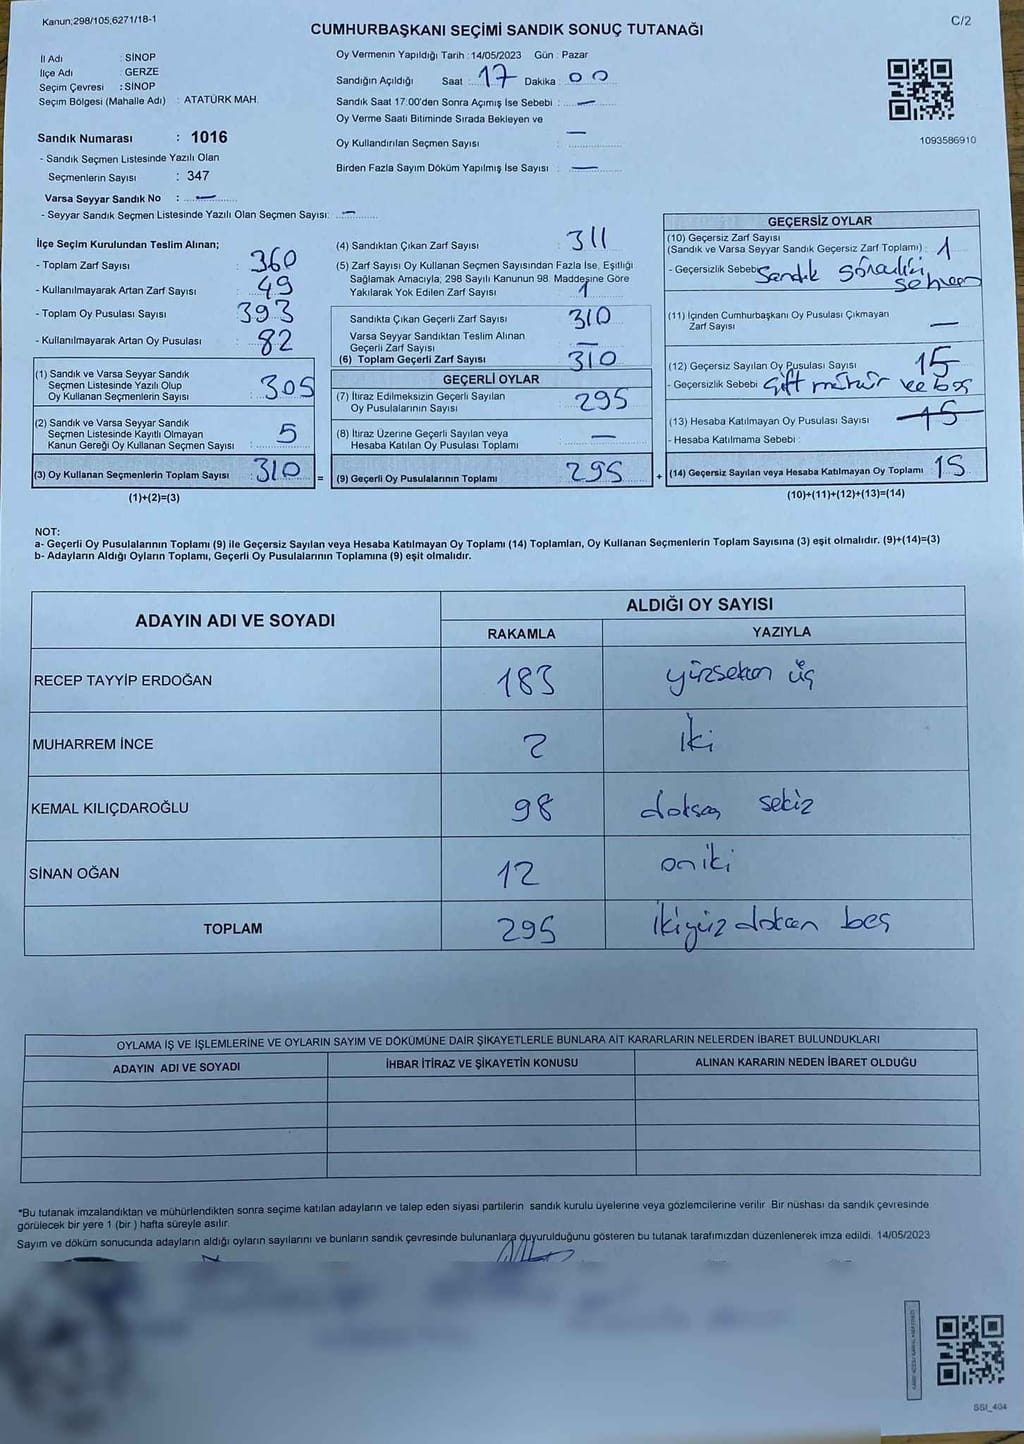 Kanun;298/105,6271/18-1
C/2
CUMHURBAŞKANI SEÇİMİ SANDIK SONUÇ TUTANAĞI
İl Adı : SİNOP
İlçe Adı : GERZE
Seçim Çevresi : SİNOP
Seçim Bölgesi (Mahalle Adı) : ATATÜRK MAH.
Sandık Numarası : 1016
- Sandık Seçmen Listesinde Yazılı Olan
Seçmenlerin Sayısı : 347
Varsa Seyyar Sandık No : —
- Seyyar Sandık Seçmen Listesinde Yazılı Olan Seçmen Sayısı: —
Oy Vermenin Yapıldığı Tarih : 14/05/2023 Gün : Pazar
Sandığın Açıldığı Saat : 17 Dakika : 00
Sandık Saat 17:00'den Sonra Açımış İse Sebebi : —
Oy Verme Saati Bitiminde Sırada Bekleyen ve
Oy Kullandırılan Seçmen Sayısı : —
Birden Fazla Sayım Döküm Yapılmış İse Sayısı : —
1093586910
İlçe Seçim Kurulundan Teslim Alınan;
- Toplam Zarf Sayısı : 360
- Kullanılmayarak Artan Zarf Sayısı : 49
- Toplam Oy Pusulası Sayısı : 393
- Kullanılmayarak Artan Oy Pusulası : 82
(1) Sandık ve Varsa Seyyar Sandık
Seçmen Listesinde Yazılı Olup
Oy Kullanan Seçmenlerin Sayısı : 305
(2) Sandık ve Varsa Seyyar Sandık
Seçmen Listesinde Kayıtlı Olmayan
Kanun Gereği Oy Kullanan Seçmen Sayısı : 5
(3) Oy Kullanan Seçmenlerin Toplam Sayısı : 310
(1)+(2)=(3)
(4) Sandıktan Çıkan Zarf Sayısı : 311
(5) Zarf Sayısı Oy Kullanan Seçmen Sayısından Fazla İse, Eşitliği
Sağlamak Amacıyla, 298 Sayılı Kanunun 98. Maddesine Göre
Yakılarak Yok Edilen Zarf Sayısı : 1
Sandıkta Çıkan Geçerli Zarf Sayısı : 310
Varsa Seyyar Sandıktan Teslim Alınan
Geçerli Zarf Sayısı : —
(6) Toplam Geçerli Zarf Sayısı : 310
GEÇERLİ OYLAR
(7) İtiraz Edilmeksizin Geçerli Sayılan
Oy Pusulalarının Sayısı : 295
(8) İtiraz Üzerine Geçerli Sayılan veya
Hesaba Katılan Oy Pusulası Toplamı : —
= (9) Geçerli Oy Pusulalarının Toplamı : 295 +
GEÇERSİZ OYLAR
(10) Geçersiz Zarf Sayısı
(Sandık ve Varsa Seyyar Sandık Geçersiz Zarf Toplamı) : 1
- Geçersizlik Sebebi Sandık görevlisi
sehven
(11) İçinden Cumhurbaşkanı Oy Pusulası Çıkmayan
Zarf Sayısı : —
(12) Geçersiz Sayılan Oy Pusulası Sayısı : 15
- Geçersizlik Sebebi Çift mühür ve boş
(13) Hesaba Katılmayan Oy Pusulası Sayısı : 15
- Hesaba Katılmama Sebebi :
(14) Geçersiz Sayılan veya Hesaba Katılmayan Oy Toplamı : 15
(10)+(11)+(12)+(13)=(14)
NOT:
a- Geçerli Oy Pusulalarının Toplamı (9) ile Geçersiz Sayılan veya Hesaba Katılmayan Oy Toplamı (14) Toplamları, Oy Kullanan Seçmenlerin Toplam Sayısına (3) eşit olmalıdır. (9)+(14)=(3)
b- Adayların Aldığı Oyların Toplamı, Geçerli Oy Pusulalarının Toplamına (9) eşit olmalıdır.
ADAYIN ADI VE SOYADI
ALDIĞI OY SAYISI
RAKAMLA YAZIYLA
RECEP TAYYİP ERDOĞAN 183 yüzseksen üç
MUHARREM İNCE 2 iki
KEMAL KILIÇDAROĞLU 98 doksan sekiz
SİNAN OĞAN 12 oniki
TOPLAM 295 İkiyüz doksan beş
OYLAMA İŞ VE İŞLEMLERİNE VE OYLARIN SAYIM VE DÖKÜMÜNE DAİR ŞİKAYETLERLE BUNLARA AİT KARARLARIN NELERDEN İBARET BULUNDUKLARI
ADAYIN ADI VE SOYADI İHBAR İTİRAZ VE ŞİKAYETİN KONUSU ALINAN KARARIN NEDEN İBARET OLDUĞU
*Bu tutanak imzalandıktan ve mühürlendikten sonra seçime katılan adayların ve talep eden siyasi partilerin sandık kurulu üyelerine veya gözlemcilerine verilir. Bir nüshası da sandık çevresinde
görülecek bir yere 1 (bir ) hafta süreyle asılır.
Sayım ve döküm sonucunda adayların aldığı oyların sayılarını ve bunların sandık çevresinde bulunanlara duyurulduğunu gösteren bu tutanak tarafımızdan düzenlenerek imza edildi. 14/05/2023
SSI_404